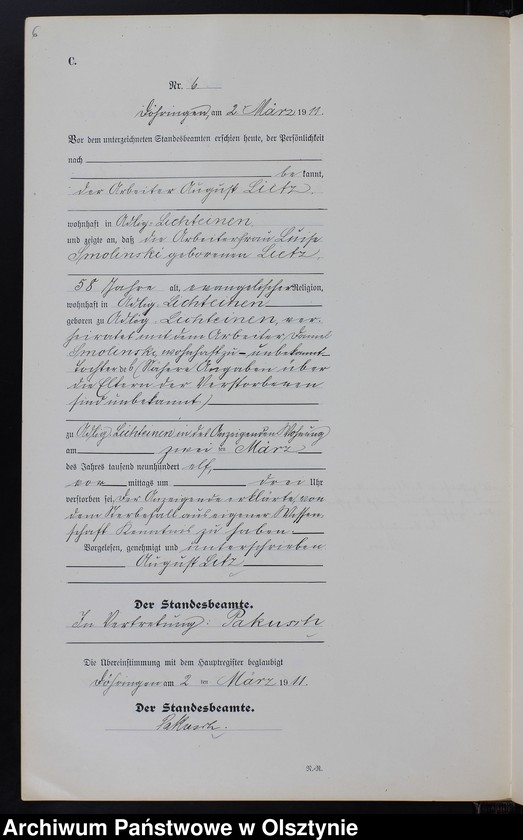 6
C.
Nr. 6
Döhringen, am 2 März 1911.
Vor dem unterzeichneten Standesbeamten erschien heute, der Persönlichkeit
nach
bekannt,
der Arbeiter August Lietz
wohnhaft in Adlig. Lichteinen
und zeigte an, daß die Arbeiterfrau Luise
Smolinski geborenen Lietz
58 Jahre alt, evangelischer Religion,
wohnhaft in Adlig. Lichteinen
geboren zu Adlig. Lichteinen, ver-
heiratet mit dem Arbeiter
Smolinski, wohnhaft zu – unbekannt
Tochter des (Nähere Angaben über
die Eltern der Verstorbenen
sind unbekannt.)
zu Adlig. Lichteinen in des Anzeigenden Wohnung
am zwei ten März
des Jahres tausend neunhundert elf,
vor mittags um drei Uhr
verstorben sei. Der Anzeigende erklärte, von
dem Sterbefall aus eigener Wissen-
schaft Kenntnis zu haben
Vorgelesen, genehmigt und unterschrieben
August Litz
Der Standesbeamte.
In Vertretung: Pakusch
Die Übereinstimmung mit dem Hauptregister beglaubigt
Döhringen am 2 ten März 1911.
Der Standesbeamte.
N.-R.
Archiwum Państwowe w Olsztynie